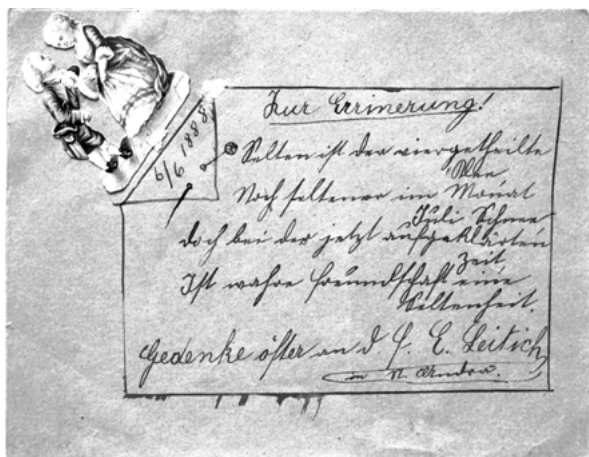 Zur Errinerung!
1888
Selten ist der viergetheilte
Klee
Noch seltener im Monat
Juli Schnee
doch bei der jetzt aufgeklärten
Zeit
Ist wahre Freundschaft eine
Seltenheit.
Gedenke öfter an d. f. E. Leitich
in N. Andra.